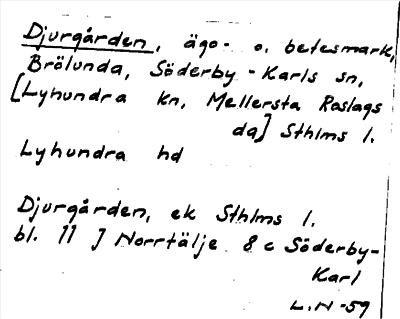 Djurgården, ägo- o. betesmark,
Brölunda, Söderby-Karls sn,
[Lyhundra kn, Mellersta Roslags
da] Sthlms l.
Lyhundra hd
Djurgården, ek Sthlms l.
bl. 11 J Norrtälje 8 c Söderby-
Karl
L.N-59